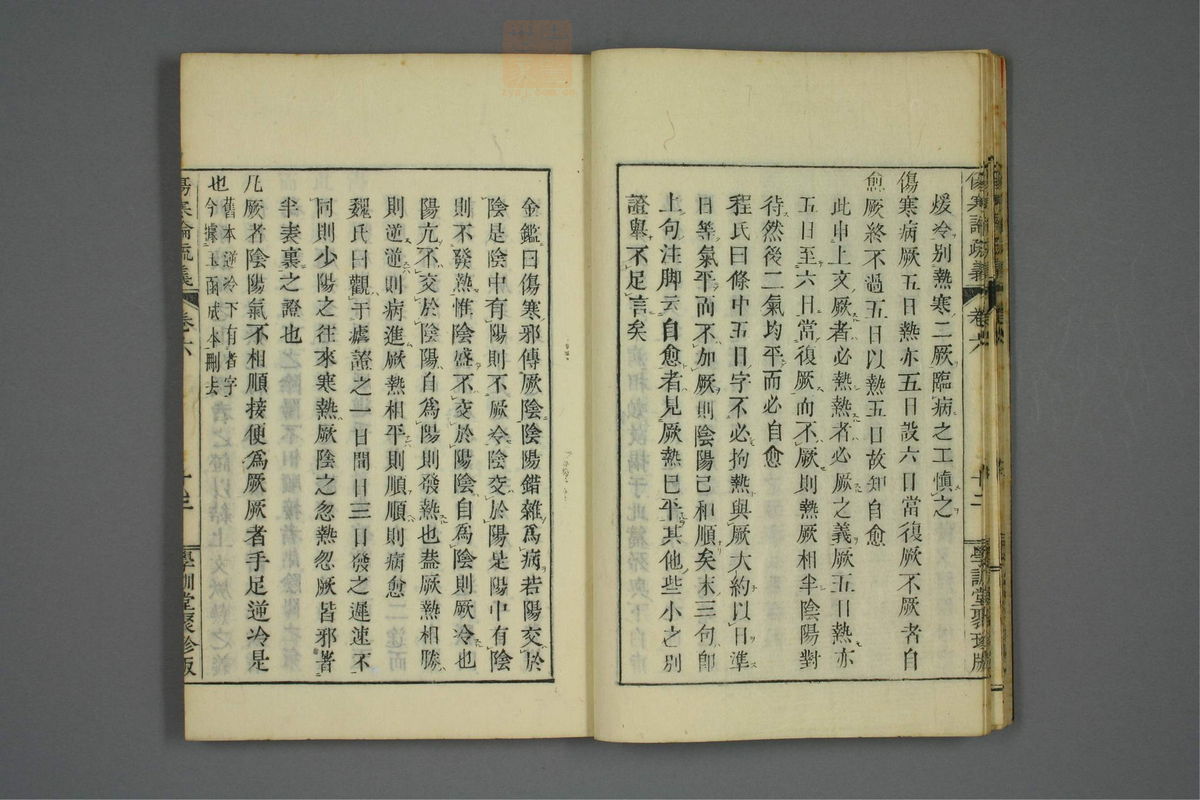 傷寒論疏義 卷六 十二 學訓堂聚珍版
煖冷別熱寒二厥臨病之工慎之
傷寒病厥五日熱亦五日設六日當復厥不厥者自
愈厥終不過五日以熱五日故知自愈
此申上文厥者必熱熱者必厥之義厥五日熱亦
五日至六日當復厥而不厥則熱厥相半陰陽對
待然後二氣均平而必自愈
程氏曰條中五日字不必拘熱與厥大約以日準
日等氣平而不加厥則陰陽已和順矣末三句卽
上句注脚云自愈者見厥熱已平其他些小之別
證舉不足言矣
金鑑曰傷寒邪傳厥陰陰陽錯雜爲病若陽交於
陰是陰中有陽則不厥冷陰交於陽是陽中有陰
則不發熱惟陰盛不交於陽陰自爲陰則厥冷也
陽亢不交於陰陽自爲陽則發熱也蓋厥熱相勝
則逆逆則病進厥熱相平則順順則病愈
魏氏曰觀于瘧證之一日間日三日發之遲速不
同則少陽之往來寒熱厥陰之忽熱忽厥皆邪著
半表裏之證也
凡厥者陰陽氣不相順接便爲厥厥者手足逆冷是
也舊本逆冷下有者字
今據玉函成本刪去
傷寒論疏義 卷六 十三 學訓堂聚珍版